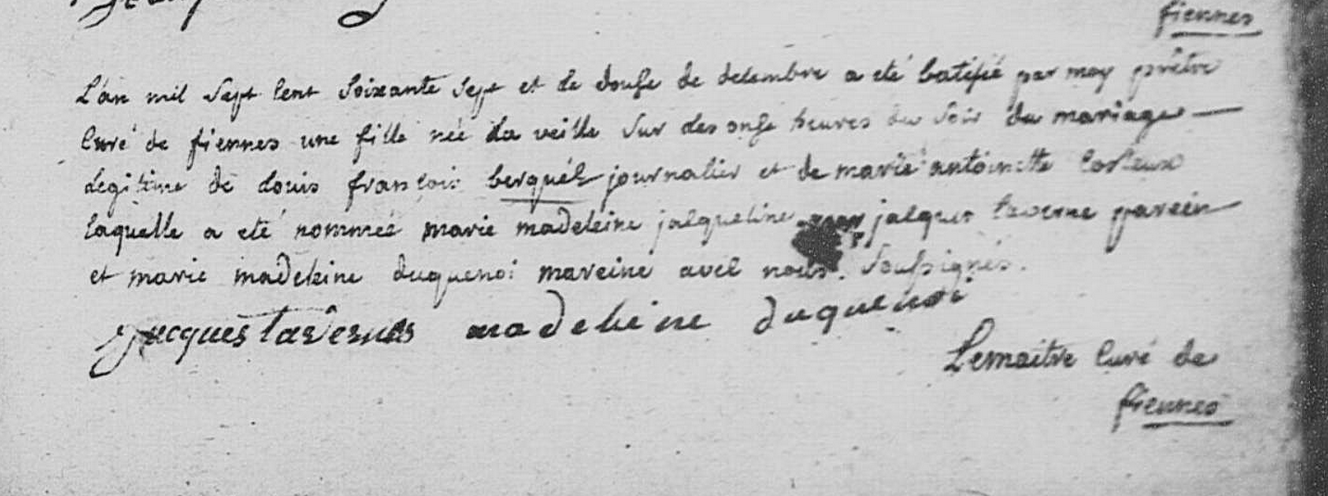 fiennes
L'an mil sept cent soixante sept et le douse de decembre a eté batisée par moy prêtre
Curé de fiennes une fille née la veille sur les onse heures du soir du mariage
legitime de Louis françois berquéz journalier et de marie antoinette
laquelle a eté nommée marie madeleine jacqueline jacques taverne parein
et marie madeleine duquenoi mareine avec nous soussignés.
jacques tavernes madeleine duquenoi
Lemaitre Curé de
fiennes